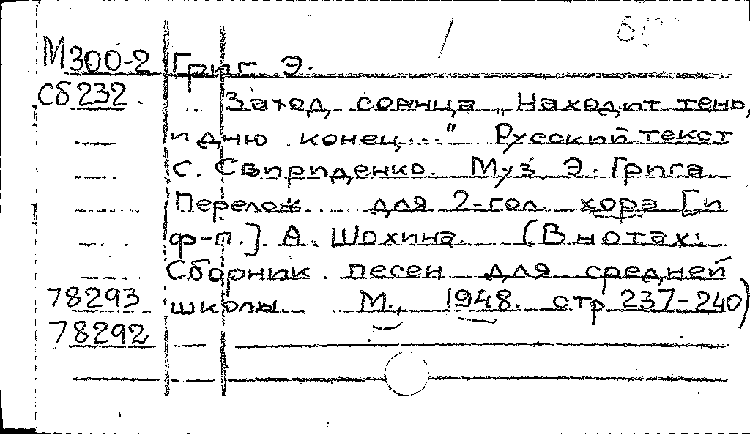 М300-2 Григ Э.
Сб232. Заход солнца „Находит тень,
и дню конец..." Русский текст
С. Свириденко. Муз Э. Грига
Перелож для 2-гол хора [и
ф-п.] А. Шохина (В нотах:
Сборник песен для средней
78293 школы М., 1948. стр 237-240)
78292